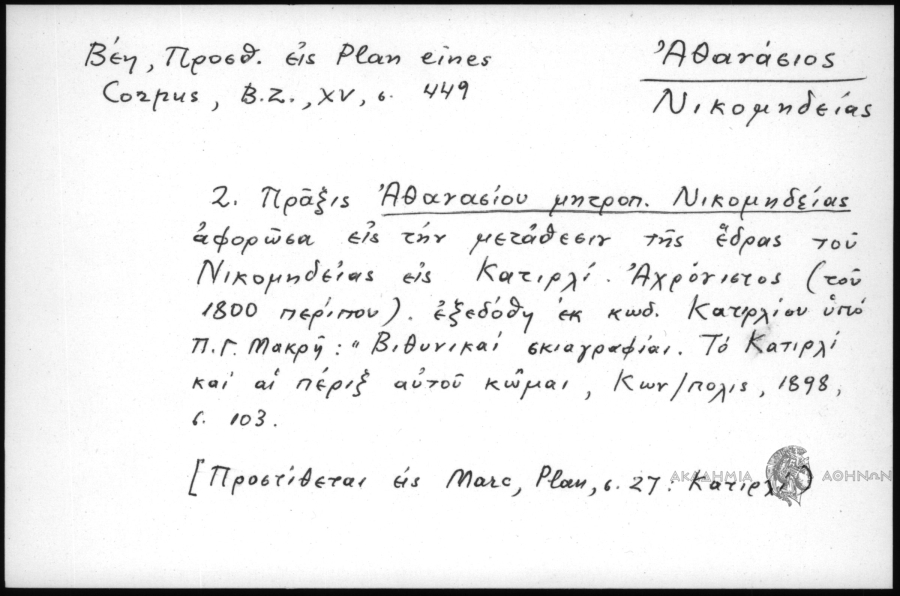 Βέη, Προσθ. εἰς Plan eines
Corpus, B.Z., XV, σ. 449
Ἀθανάσιος
Νικομηδείας
2. Πρᾶξις Ἀθανασίου μητροπ. Νικομηδείας
ἀφορῶσα εἰς τήν μετάθεσιν τῆς ἕδρας τοῦ
Νικομηδείας εἰς Κατιρλί. Ἀχρόνιστος (τοῦ
1800 περίπου). ἐξεδόθη ἐκ κωδ. Κατιρλίου ὑπό
Π.Γ. Μακρῆ: "Βιθυνικαί σκιαγραφίαι. Τό Κατιρλί
καί αἱ πέριξ αὐτοῦ κῶμαι, Κων/πολις, 1898,
σ. 103.
[Προστίθεται εἰς Marc, Plan, σ. 27: Κατιρλί]
ΑΚΑΔΗΜΙΑ ΑΘΗΝΩΝ